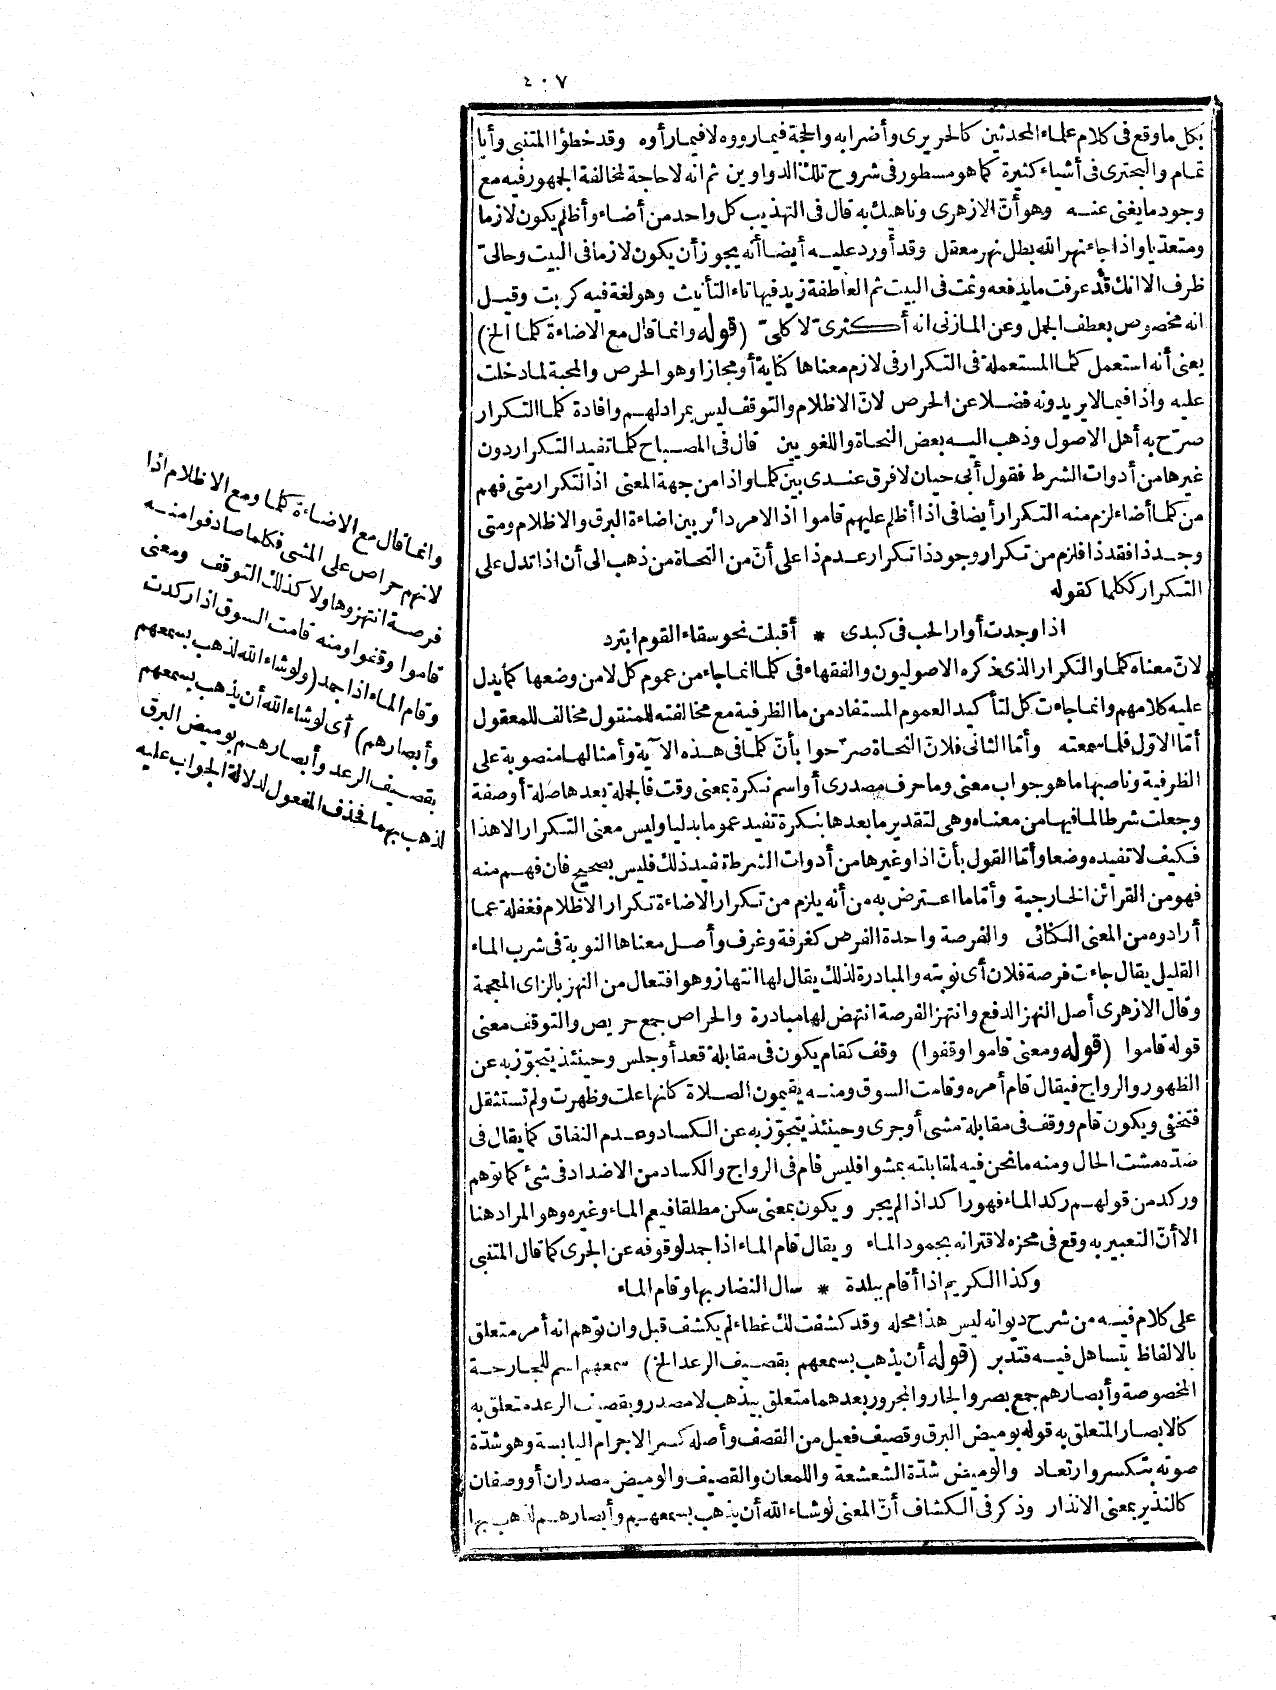 ٤٠٧
بكل ما وقع فى كلام علماء المحدثين كالحريرى وأضرابه والحجة فيما رووه لا فيما رأوه وقد خطؤا المتنبى وأبا
تمام والبحترى فى أشياء كثيرة كما هو مسطور فى شروح تلك الدواوين ثم انه لا حاجة لمخالفة الجمهور فيه مع
وجود ما يغنى عنه وهو أنّ الازهرى وناهيك به قال فى التهذيب كل واحد من أضاء وأظلم يكون لازما
ومتعديا واذا جاء نهر الله بطل نهر معقل وقد أورد عليه أيضا أنه يجوز أن يكون لازما فى البيت وحالىّ
ظرف الا انك قد عرفت ما يدفعه وثمت فى البيت ثم العاطفة زيد فيها تاء التأنيث وهو لغة فيه كربت وقيل
انه مخصوص بعطف الجمل وعن المازنى انه أكثرىّ لا كلىّ (قوله وانما قال مع الاضاءة كلما الخ)
يعنى أنه استعمل كلما المستعملة فى التكرار فى لازم معناها كناية أو مجازا وهو الحرص والمحبة لما دخلت
عليه واذا فيما لا يريدونه فضلا عن الحرص لانّ الاظلام والتوقف ليس بمراد لهم وافادة كلما التكرار
صرّح به أهل الاصول وذهب اليه بعض النحاة واللغويين قال فى المصباح كلما تفيد التكرار دون
غيرها من أدوات الشرط فقول أبى حيان لا فرق عندى بين كلما واذا من جهة المعنى اذ التكرار متى فهم
من كلما أضاء لزم منه التكرار أيضا فى اذا أظلم عليهم قاموا اذ الامر دائر بين اضاءة البرق والاظلام ومتى
وجد ذا فقد ذا فلزم من تكرار وجود ذا تكرار عدم ذا على أنّ من النحاة من ذهب الى أن اذا تدل على
التكرار ككلما كقوله
اذا وجدت أوار الحب فى كبدى * أقبلت نحو سقاء القوم ابترد
لانّ معناه كلما والتكرار الذى ذكره الاصوليون والفقهاء فى كلما انما جاء من عموم كل لا من وضعها كما يدل
عليه كلامهم وانما جاءت كل لتأكيد العموم المستفاد من ما الظرفية مع مخالفته للمنقول مخالف للمعقول
أمّا الاوّل فلما سمعته وأمّا الثانى فلانّ النحاة صرّحوا بأنّ كلما فى هذه الآية وأمثالها منصوبة على
الظرفية وناصبها ما هو جواب معنى وما حرف مصدرى أو اسم نكرة بمعنى وقت فالجملة بعدها صلة أو صفة
وجعلت شرطا لما فيها من معناه وهى لتقدير ما بعدها بنكرة تفيد عموما بدليا وليس معنى التكرار الا هذا
فكيف لا تفيده وضعا وأمّا القول بأنّ اذا وغيرها من أدوات الشرط تفيد ذلك فليس بصحيح فان فهم منه
فهو من القرائن الخارجية وأمّا ما اعترض به من أنه يلزم من تكرار الاضاءة تكرار الاظلام فغفلة عما
أرادوه من المعنى الكنائى والفرصة واحدة الفرص كغرفة وغرف وأصل معناها النوبة فى شرب الماء
القليل يقال جاءت فرصة فلان أى نوبته والمبادرة لذلك يقال لها انتهاز وهو افتعال من النهز بالزاى المعجمة
وقال الازهرى أصل النهز الدفع وانتهز الفرصة انتهض لها مبادرة والحراص جمع حريص والتوقف معنى
قوله قاموا (قوله ومعنى قاموا وقفوا) وقف كقام يكون فى مقابلة قعد أو جلس وحينئذ يتجوّز به عن
الظهور والرواج فيقال قام أمره وقامت السوق ومنه يقيمون الصلاة كأنها علت وظهرت ولم تستثقل
فتخفى ويكون قام ووقف فى مقابلة مشى أو جرى وحينئذ يتجوّز به عن الكساد وعدم النفاق كما يقال فى
ضدّه مشت الحال ومنه ما نحن فيه لمقابلته بمشوا فليس قام فى الرواج والكساد من الاضداد فى شئ كما توهم
وركد من قولهم ركد الماء فهو راكد اذا لم يجر ويكون بمعنى سكن مطلقا فيعم الماء وغيره وهو المراد هنا
الا أنّ التعبير به وقع فى محزه لاقترانه بجمود الماء ويقال قام الماء اذا جمد لوقوفه عن الجرى كما قال المتنبى
وكذا الكريم اذا أقام ببلدة * سال النضار بها وقام الماء
على كلام فيه من شرح ديوانه ليس هذا محله وقد كشفت لك غطاء لم يكشف قبل وان توهم انه أمر متعلق
بالالفاظ يتساهل فيه فتدبر (قوله أن يذهب بسمعهم بقصيف الرعد الخ) سمعهم اسم للجارحة
المخصوصة وأبصارهم جمع بصر والجار والمجرور بعدهما متعلق بيذهب لا مصدر وبقصيف الرعد متعلق به
كالابصار المتعلق به قوله بوميض البرق وقصيف فعيل من القصف وأصله كسر الاجرام اليابسة وهو شدّة
صوته بتكسر وارتعاد والوميض شدّة الشعشعة واللمعان والقصيف والوميض مصدران أو وصفان
كالنذير بمعنى الانذار وذكر فى الكشاف أنّ المعنى لو شاء الله أن يذهب بسمعهم وأبصارهم لذهب بها
وانما قال مع الاضاءة كلما ومع الاظلام اذا
لانهم حراص على المشى فكلما صادفوا منه
فرصة انتهزوها ولا كذلك التوقف ومعنى
قاموا وقفوا ومنه قامت السوق اذا ركدت
وقام الماء اذا جمد (ولو شاء الله لذهب بسمعهم
وأبصارهم) أى لو شاء الله أن يذهب بسمعهم
بقصيف الرعد وأبصارهم بوميض البرق
لذهب بهما فحذف المفعول لدلالة الجواب عليه